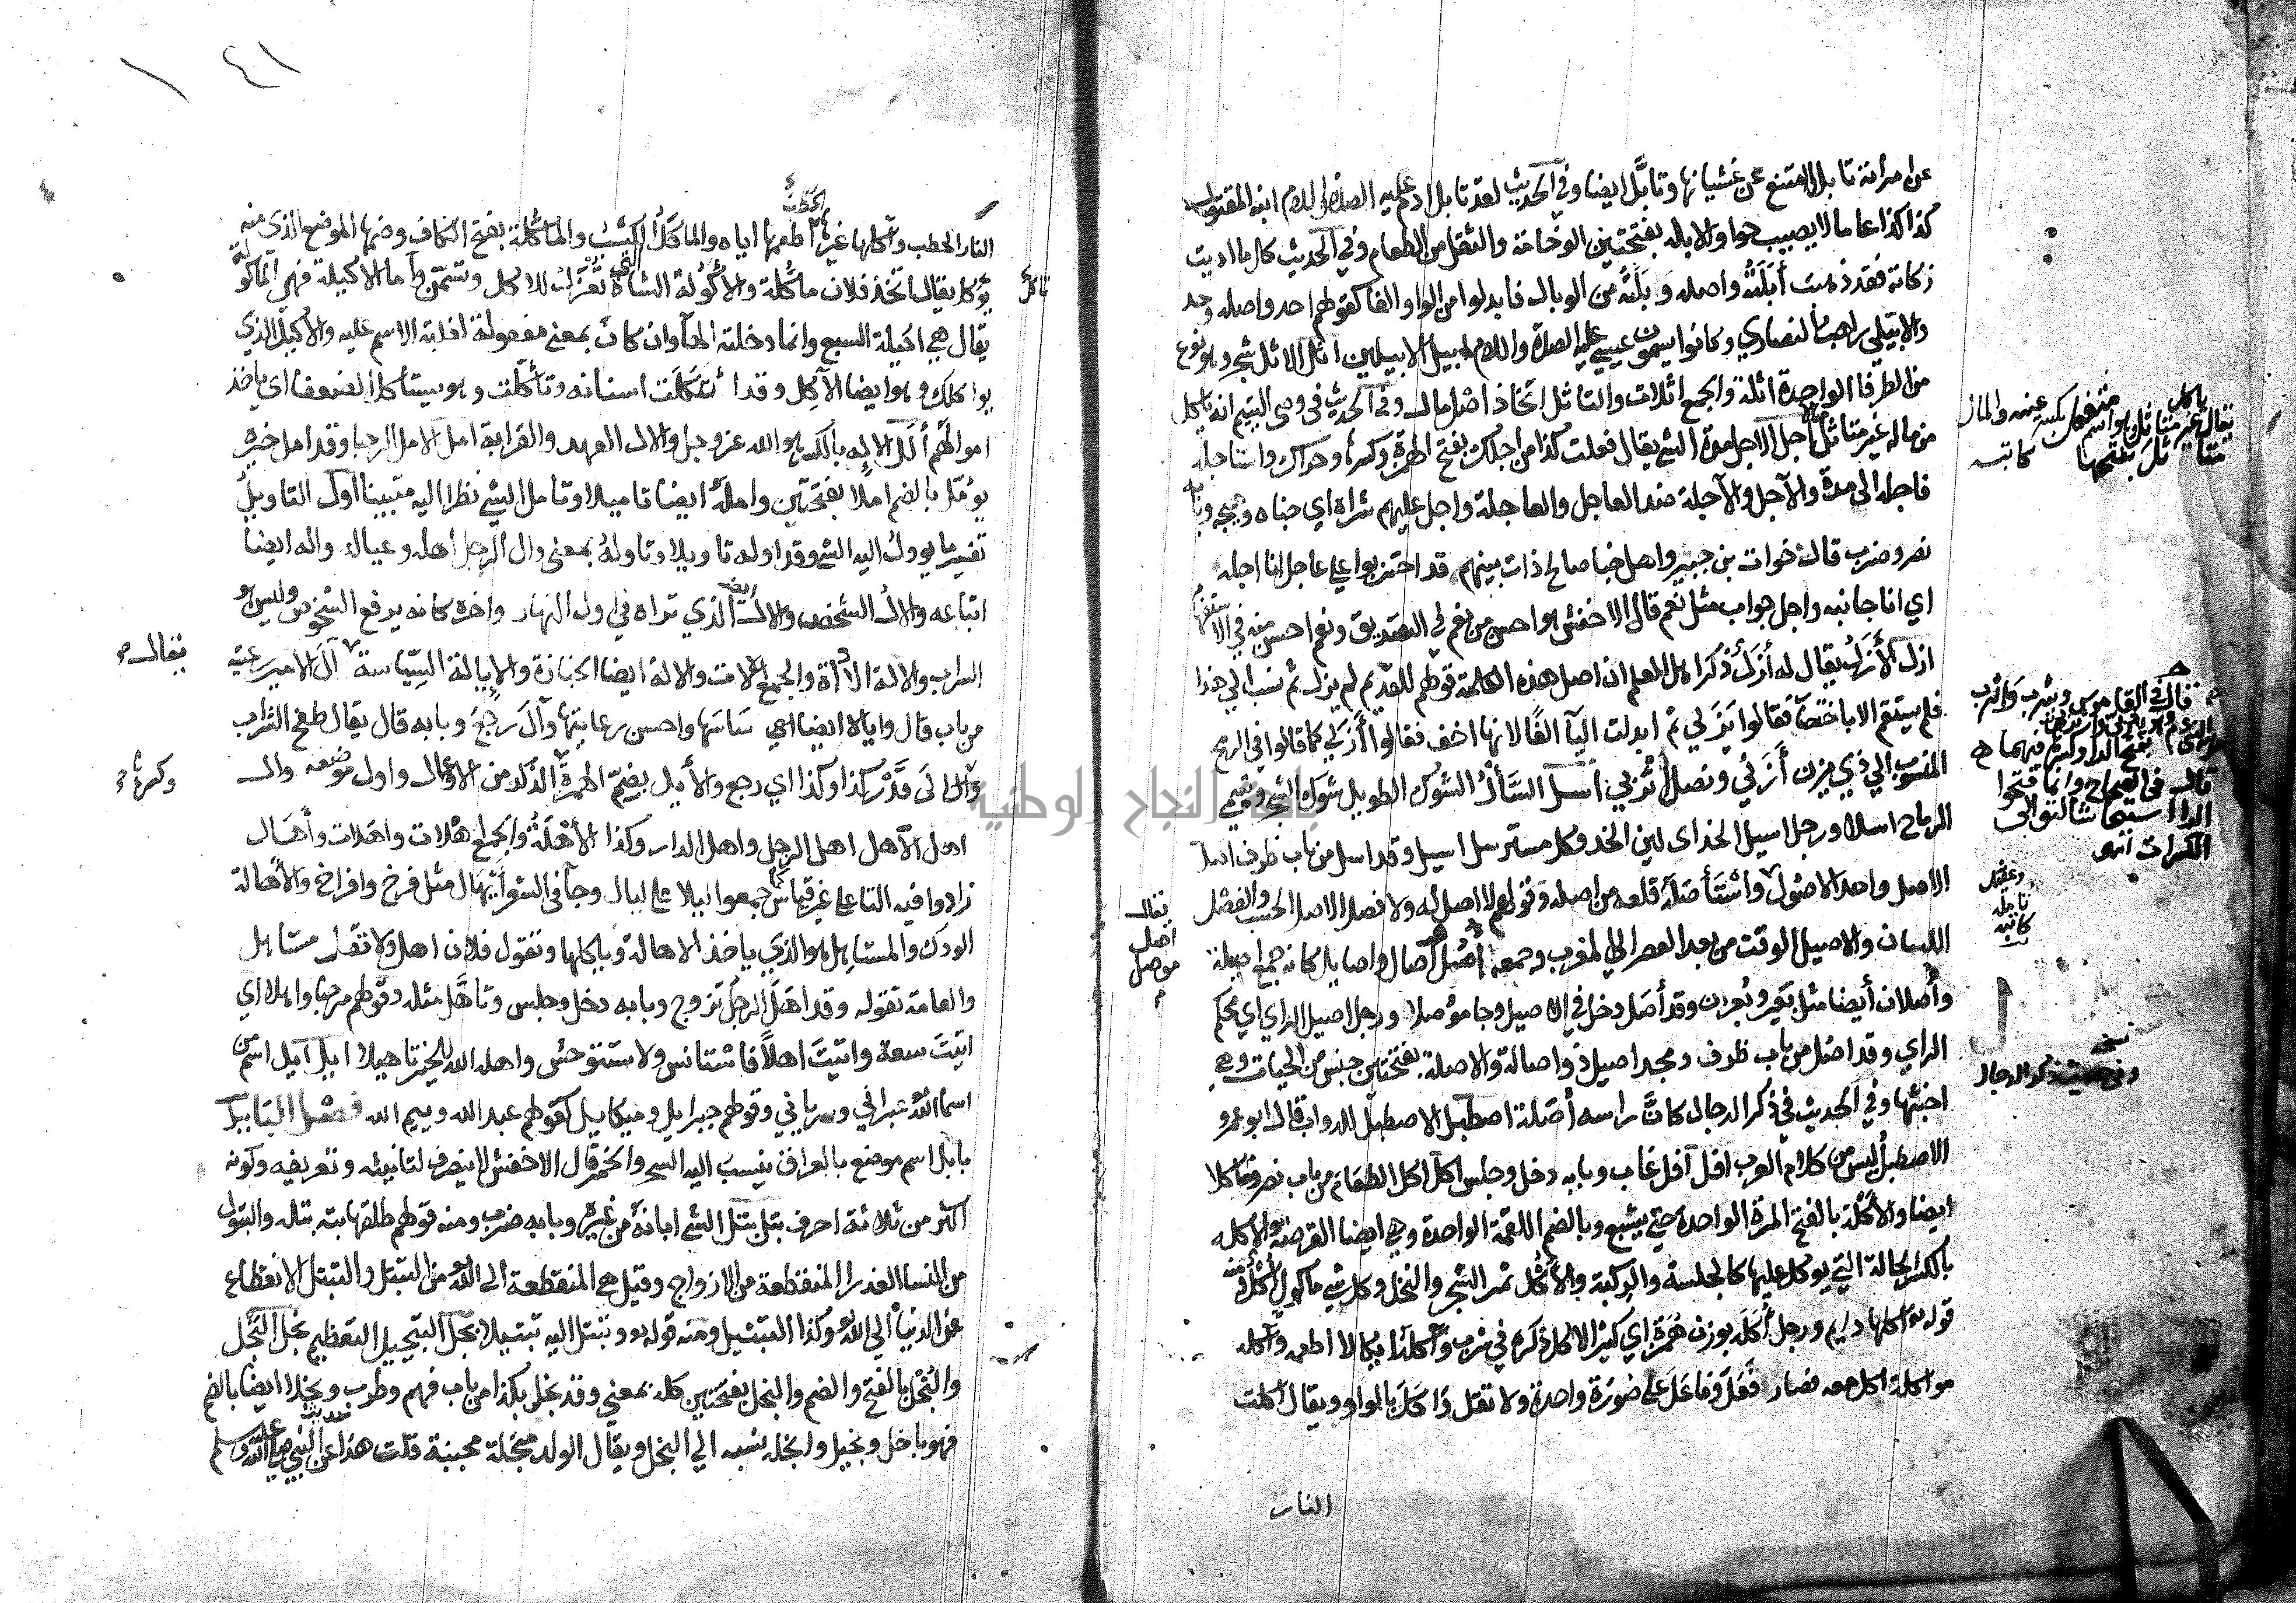 عن امراته تابل اي امتنع عن غشيانها وتأبّل ايضا وفي الحديث لقد تابل ادم عليه الصلاة والسلام على ابنه المقتول
كذا كذا عاما لا يصيب حوا والابلة بفتحتين الوخامة والثقل من الطعام وفي الحديث كل مال اديت
زكاته فقد ذهبت أبَلَتُه واصله وبَلَتُه من الوبال فابدلوا من الواو الفا كقولهم احد واصله وحد
والابيلي راهب النصاري وكانوا يسمون عيسي عليه الصلاة والسلام ابيل الابيلين اثل الاثل شجر وهو نوع
من الطرفا الواحدة اثلة والجمع اثلات والتاثل اتخاذ اصل مال وفي الحديث في وصي اليتيم انه ياكل
من ماله غير متاثل مالا اجل الاجل مدة الشي يقال فعلت كذا من اجلك بفتح الهمزة وكسرها ومن جراك واستاجله
فاجله الى مدة والآجل والآجلة ضد العاجل والعاجلة واجل عليهم شرا اي جناه وهيجه وبابه
نصر وضرب قال خوات بن جبير واهل خبا صالح ذات بينهم قد احتربوا في عاجل انا اجله
اي انا جانيه واجل جواب مثل نعم قال الاخفش هو احسن من نعم في التصديق ونعم احسن منه في الاستفهام
ازل الأزَل يقال له أزَلٌ ذكر اهل العلم ان اصل هذه الكلمة قولهم للقديم لم يزل ثم نسب الي هذا
فلم يستقم الا باختصار فقالوا يَزَلي ثم ابدلت اليآ الفًا لانها اخف فقالوا أَزَلي كما قالوا في الرمح
المنسوب الي ذي يزن أَزَني ونصل أثربي اسل الأَسَلُ الشوك الطويل شوك الشجر وتسمى
الرماح اسلا ورجل اسيل الخد اى لين الخد وكل مسترسل اسيل وقد اسل من باب ظرف اصل
الاصل واحد الاصول واستأصله قلعه من اصله وقولهم لا اصل له ولا فصل الاصل الحسب والفصل
اللسان والاصيل الوقت من بعد العصر الي المغرب وجمعه أُصُل وآصال واصايل كانه جمع اصيلة
وأصلان أيضا مثل بَعير وبُعران وقد أصَل دخل في الاصيل وجا مؤصلا ورجل اصيل الراي اي محكم
الراي وقد اصل من باب ظرف ومجد اصيل ذو اصالة والاصلة بفتحتين جنس من الحيات وهي
اخبثها وفي الحديث في ذكر الدجال كانَّ راسه أصَلة اصطبل الاصطبل للدواب قال ابو عمرو
الاصطبل ليس من كلام العرب افل آفل غاب وبابه دخل وجلس اكل اكل الطعام من باب نصر وماكلا
ايضا والأَكْلة بالفتح المرة الواحدة حتي يشبع وبالضم اللقمة الواحدة وهي ايضا القرصة والاكلة
بالكسر الحالة التي يوكل عليها كالجلسة والركبة والأُكُل ثمر الشجر والنخل وكل شي ماكول أُكُل ومنه
قوله اكلها دايم ورجل أُكَلة بوزن هُمَزة اي كثير الاكل ذكره في شرب وآكله ايكالا اطعمه وآكله
مواكلة اكل معه فصار فَعَل وفاعَل على صورة واحدة ولا تقل وَاكَلَ بالواو ويقال اكلت
النار
ياكل
يقال غير متاثل هو اسم
متاثل بفتحها
كاتبه
قال في القاموس
قال في الصحاح وانما فتحوا
الرا استيحاشا لتوالى
الكسرات انتهى
يقال
اصل
موصل
نسخه
وفي حديث ذكر الدجال
١٤١
النار الحطب وآكلها غيرها الحطب اطعمها اياه والمأكَلُ الكسب والمأكلة بفتح الكاف وضمها الموضع الذي منه
يؤكل يقال اتخذ فلان مأكُلة والأكُولَة الشاة التي تُعزَل للاكل وتسمن وآما الاكيلة فهي المآكولة
يقال هي اكيلة السبع وانما دخلته الهآ وان كان بمعنى مفعولة لغلبة الاسم عليه والأكيل الذي
يواكلك وهو ايضا الآكِل وقد ائتكلَت اسنانه وتأكّلت وهو يستاكل الضعفا اي ياخذ
اموالهم ألل الإل بالكسر هو الله عز وجل والال العهد والقرابة امل الامل الرجا وقد امل خيره
يؤمّل بالضم املا بفتحتين واملَهُ ايضا تاميلا وتامل الشي نظر اليه متبينا اول التاويلُ
تفسير ما يوول اليه الشي وقد اوله تاويلا وتاوله بمعنى وال الرجل اهله وعياله واله ايضا
اتباعه والالُ الشخص والالُ ايضا الذي تراه في اول النهار واخره كانه يرفع الشخوص وليس هو
السراب والالة الاداة والجمع الالات والالة ايضا الجنازة والإيالة السِّيَاسة يقال آلَ الامير رعيته
من باب قال وايالا ايضا اي سَاسَها واحسن رعايتها وآلَ رجعَ وبابه قال يقال طبخ الشراب
فآل الى قَدْر كذا وكذا اي رجع والأيل بضم الهمزة وكسرها الذكر من الاوعال واول موضعه وال
اهل الأهل اهل الرجل واهل الدار وكذا الأهْلَةُ والجمع اهلات واهَلات وأهَال
زادوا فيه اليا على غير قياس كما جمعوا ليلا على ليال وجآ في الشعر أهَال مثل فرخ وافراخ والأهالة
الودك والمستاهِل هو الذي ياخذ الاهالة او ياكلها وتقول فلان اهل ولا تقل مستاهل
والعامة تقوله وقد اهَلَ الرجلُ تزوج وبابه دخل وجلس وتأهَّل مثله وقولهم مرحبا واهلا اي
اتيتَ سعة واتيتَ اهلاً فاستانس ولا تستوحش واهله الله للخير تاهيلا ايل ايل اسم من
اسما الله عبراني وسرياني وقولهم جبرايل وميكاييل كقولهم عبد الله وتيم الله فصل البا بابل
بابل اسم موضع بالعراق ينسب اليه السحر والخمر قال الاخفش لا ينصرف لتانيثه وتعريفه وكونه
اكثر من ثلاثة احرف بتل بتل الشي ابانه من غيره وبابه ضرب ومنه قولهم طلقها بتة بتلة والبتول
من النسا العذرا المنقطعة من الازواج وقيل هي المنقطعة الى الله من التبتل والتبتل الانقطاع
عن الدنيا الي الله وكذا التبتيل ومنه قوله وتبتل اليه تبتيلا بجل التبجيل التعظيم بخل البُخل
والبُخْل بالفتح والضم والبخل بفتحتين كله بمعنى وقد بخل بكذا من باب فهم وطرب وبخلا ايضا بالضم
فهو باخل وبخيل وابخله نسبه الي البخل ويقال الولد مبخلة مجبنة قلت هذا حديث عن النبي صلى الله عليه وسلم
يقال
وكسرها
جامعة النجاح الوطنية